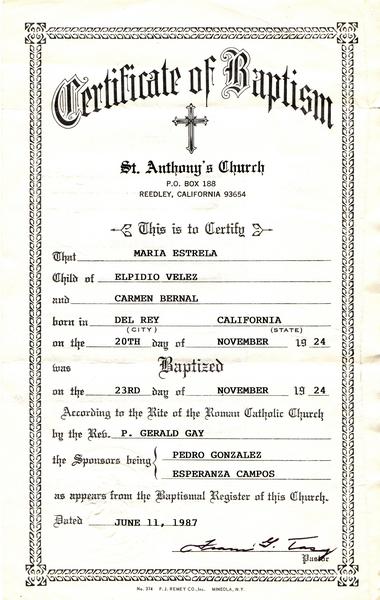 Certificate of Baptism
St. Anthony's Church
P.O. BOX 188
REEDLEY, CALIFORNIA 93654
This is to Certify
That MARIA ESTRELA
Child of ELPIDIO VELEZ
and CARMEN BERNAL
born in DEL REY CALIFORNIA
(CITY) (STATE)
on the 20TH day of NOVEMBER 19 24
was Baptized
on the 23RD day of NOVEMBER 19 24
According to the Rite of the Roman Catholic Church
by the Rev. P. GERALD GAY
the Sponsors being PEDRO GONZALEZ
ESPERANZA CAMPOS
as appears from the Baptismal Register of this Church.
Dated JUNE 11, 1987
Pastor
No. 314 F. J. REMEY CO., Inc. MINEOLA, N.Y.